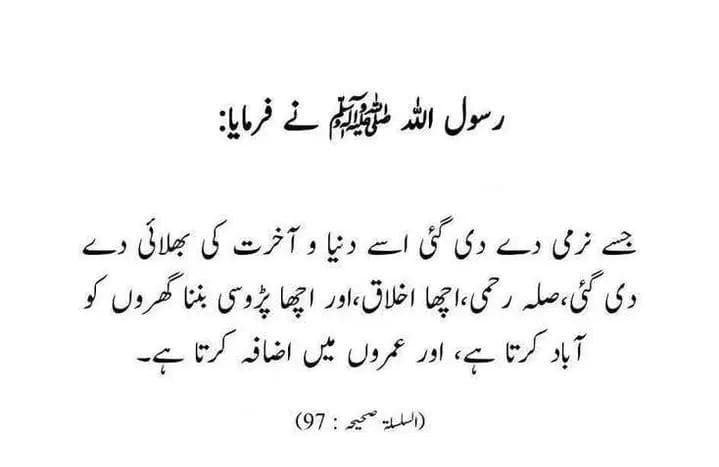 رسول اللہ ﷺ نے فرمایا:
جسے نرمی دے دی گئی اسے دنیا و آخرت کی بھلائی دے
دی گئی،صلہ رحمی،اچھا اخلاق،اور اچھا پڑوسی بننا گھروں کو
آباد کرتا ہے، اور عمروں میں اضافہ کرتا ہے۔
(السلسلۃ صحیحہ : 97)